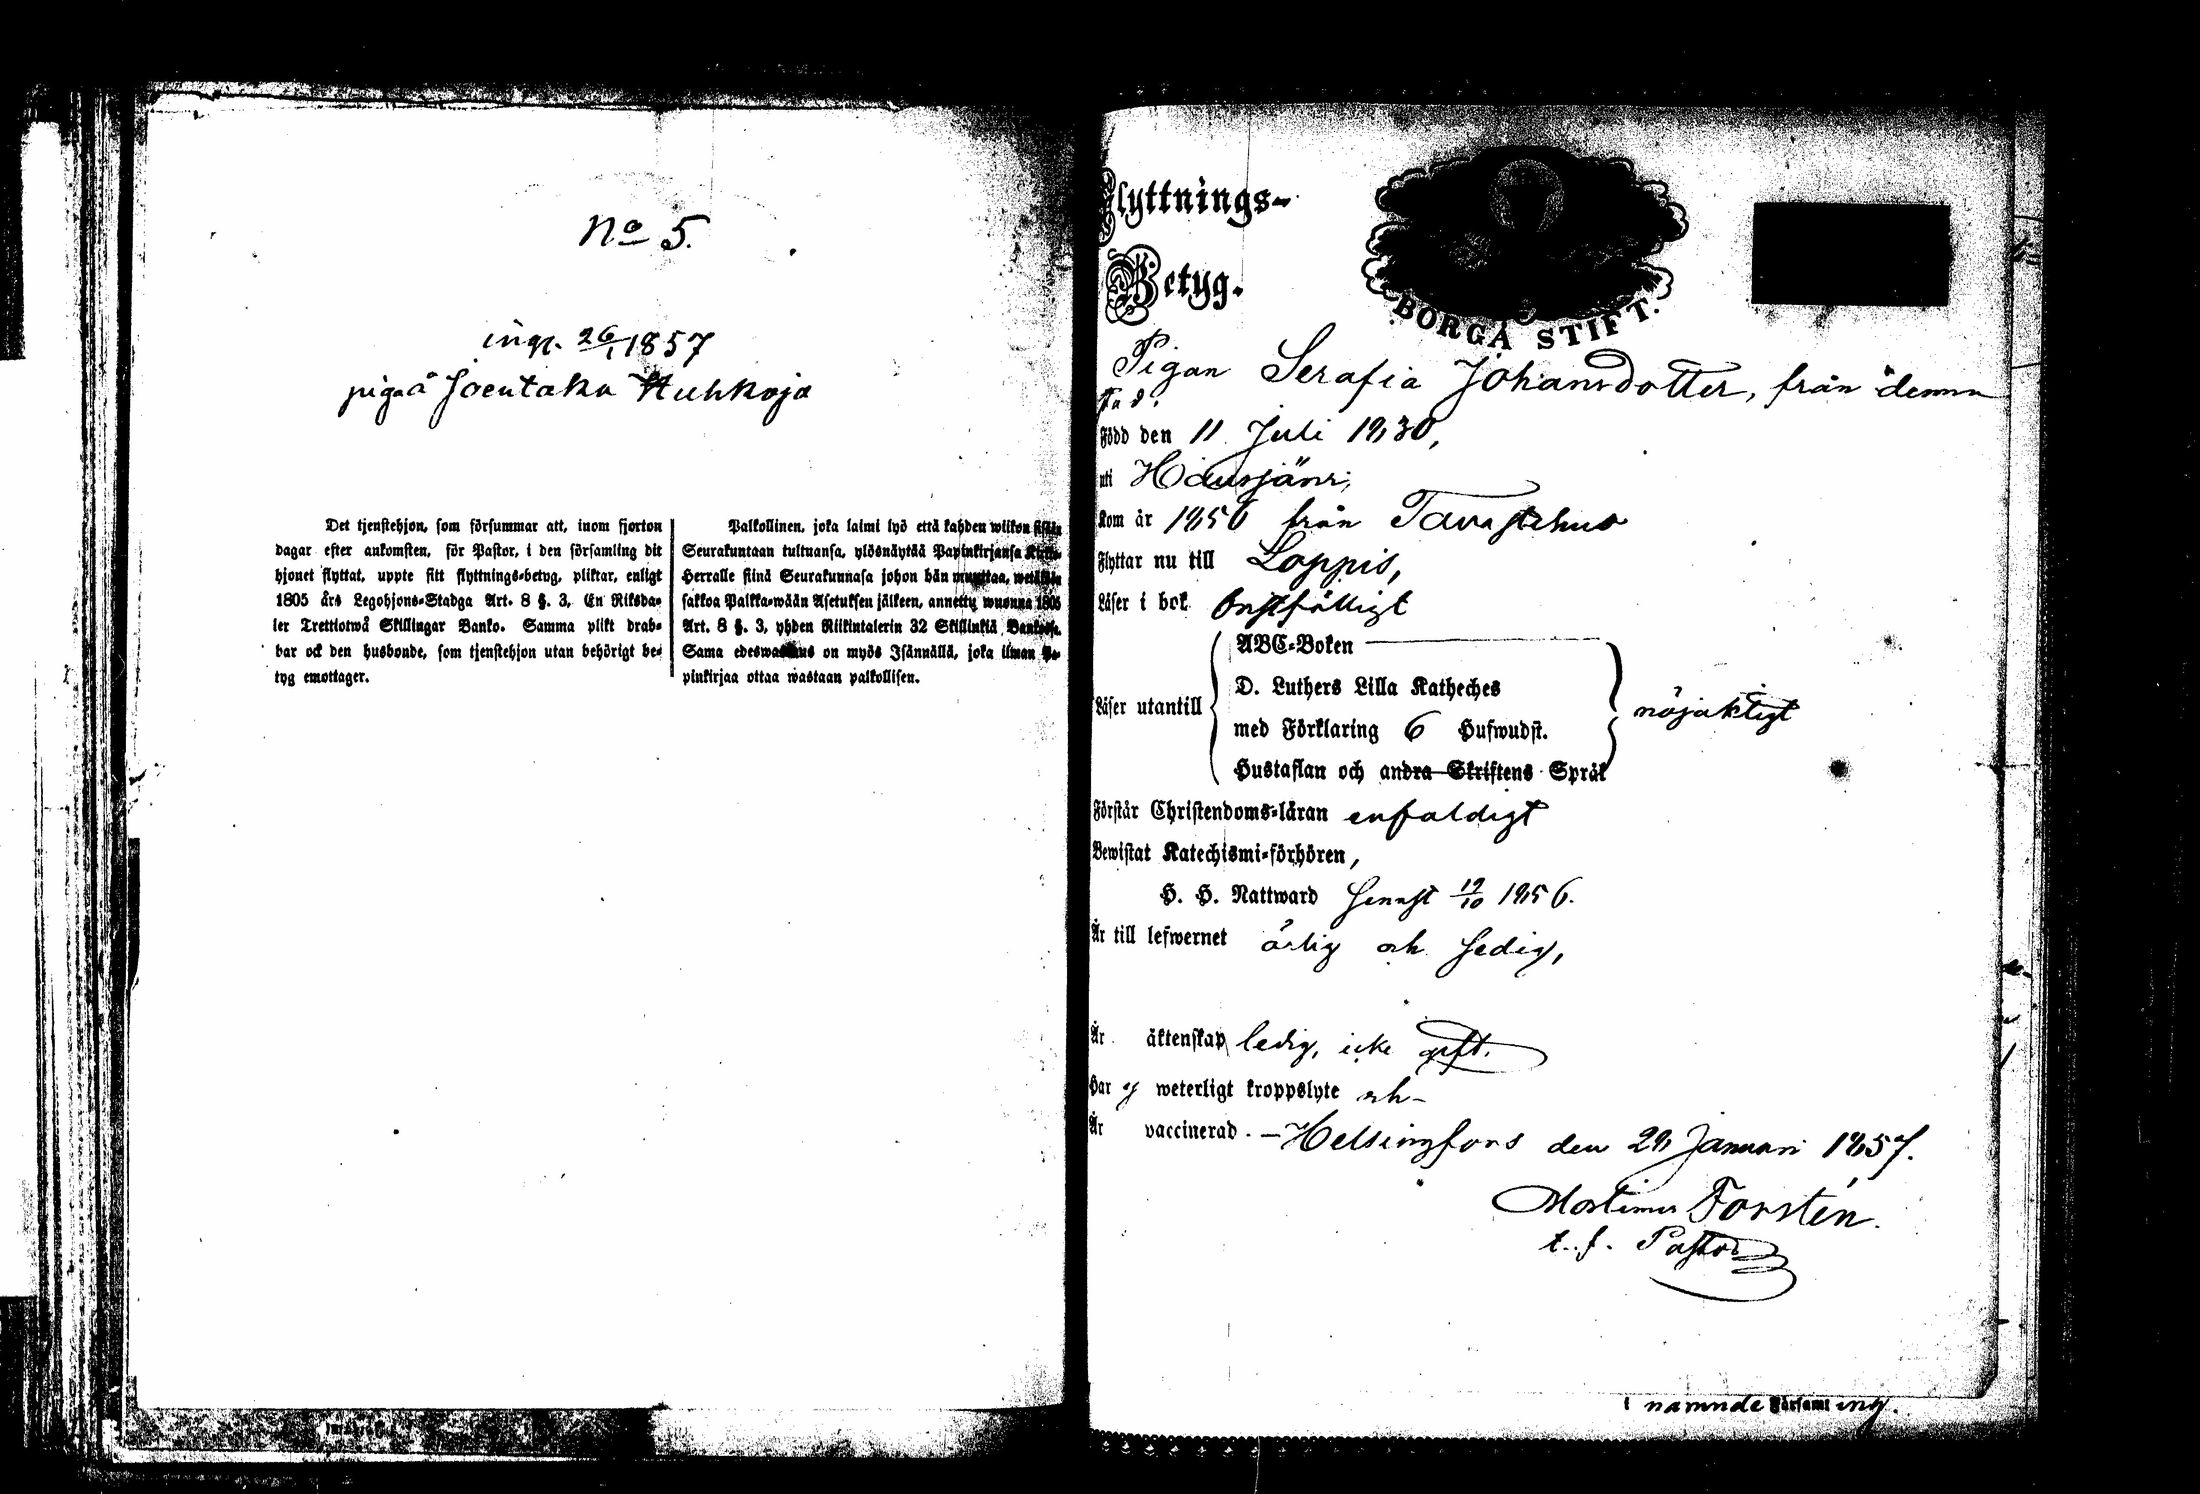 No 5.
ingr. 26/1 1857
piga å Joentaka Huhkoja
Det tjenstehjon, som försummar att, inom fjorton
dagar efter ankomsten, för Pastor, i den församling dit
hjonet flyttat, uppte sitt flyttnings-betyg, pliktar, enligt
1805 års Legohjons-Stadga Art. 8 §. 3, En Riksda-
ler Trettiotwå Skillingar Banko. Samma plikt drab-
bar ock den husbonde, som tjenstehjon utan behörigt be-
tyg emottager.
Palkollinen, joka laimi lyö että kahden wiikon sisään
Seurakuntaan tultuansa, ylösnäytää Papinkirjansa Kirkko-
Herralle siinä Seurakunnasa johon hän muuttaa, wetäkään
sakkoa Palkka-wään Asetuksen jälkeen, annettu wuonna 1805
Art. 8 §. 3, yhden Riikintalerin 32 Skillinkiä Bankosa.
Sama edeswastaus on myös Isännällä, joka ilman Pa-
pinkirjaa ottaa wastaan palkollisen.
Flyttnings-
Betyg.
BORGÅ STIFT.
Pigan Serafia Johansdotter, från denna
stad.
Född den 11 Juli 1830,
uti Hausjärvi,
Kom år 1856 från Tavastehus
Flyttar nu till Loppis,
Läser i bok
Läser utantill
ABC-Boken
D. Luthers Lilla Katheches
med Förklaring 6 Hufwudst.
Hustaflan och andra Skriftens Språk
nöjaktigt
Förstår Christendoms-läran enfaldigt
Bewistat Katechismi-förhören,
H. H. Nattward senast 19/10 1856.
Är till lefwernet ärlig och sedig,
Är äktenskap ledig, icke gift.
Har ej weterligt kroppslyte och
Är vaccinerad. — Helsingfors den 28 Januari 1857.
Mortimer Forstén.
t. f. Pastor
i nämnde Församling.